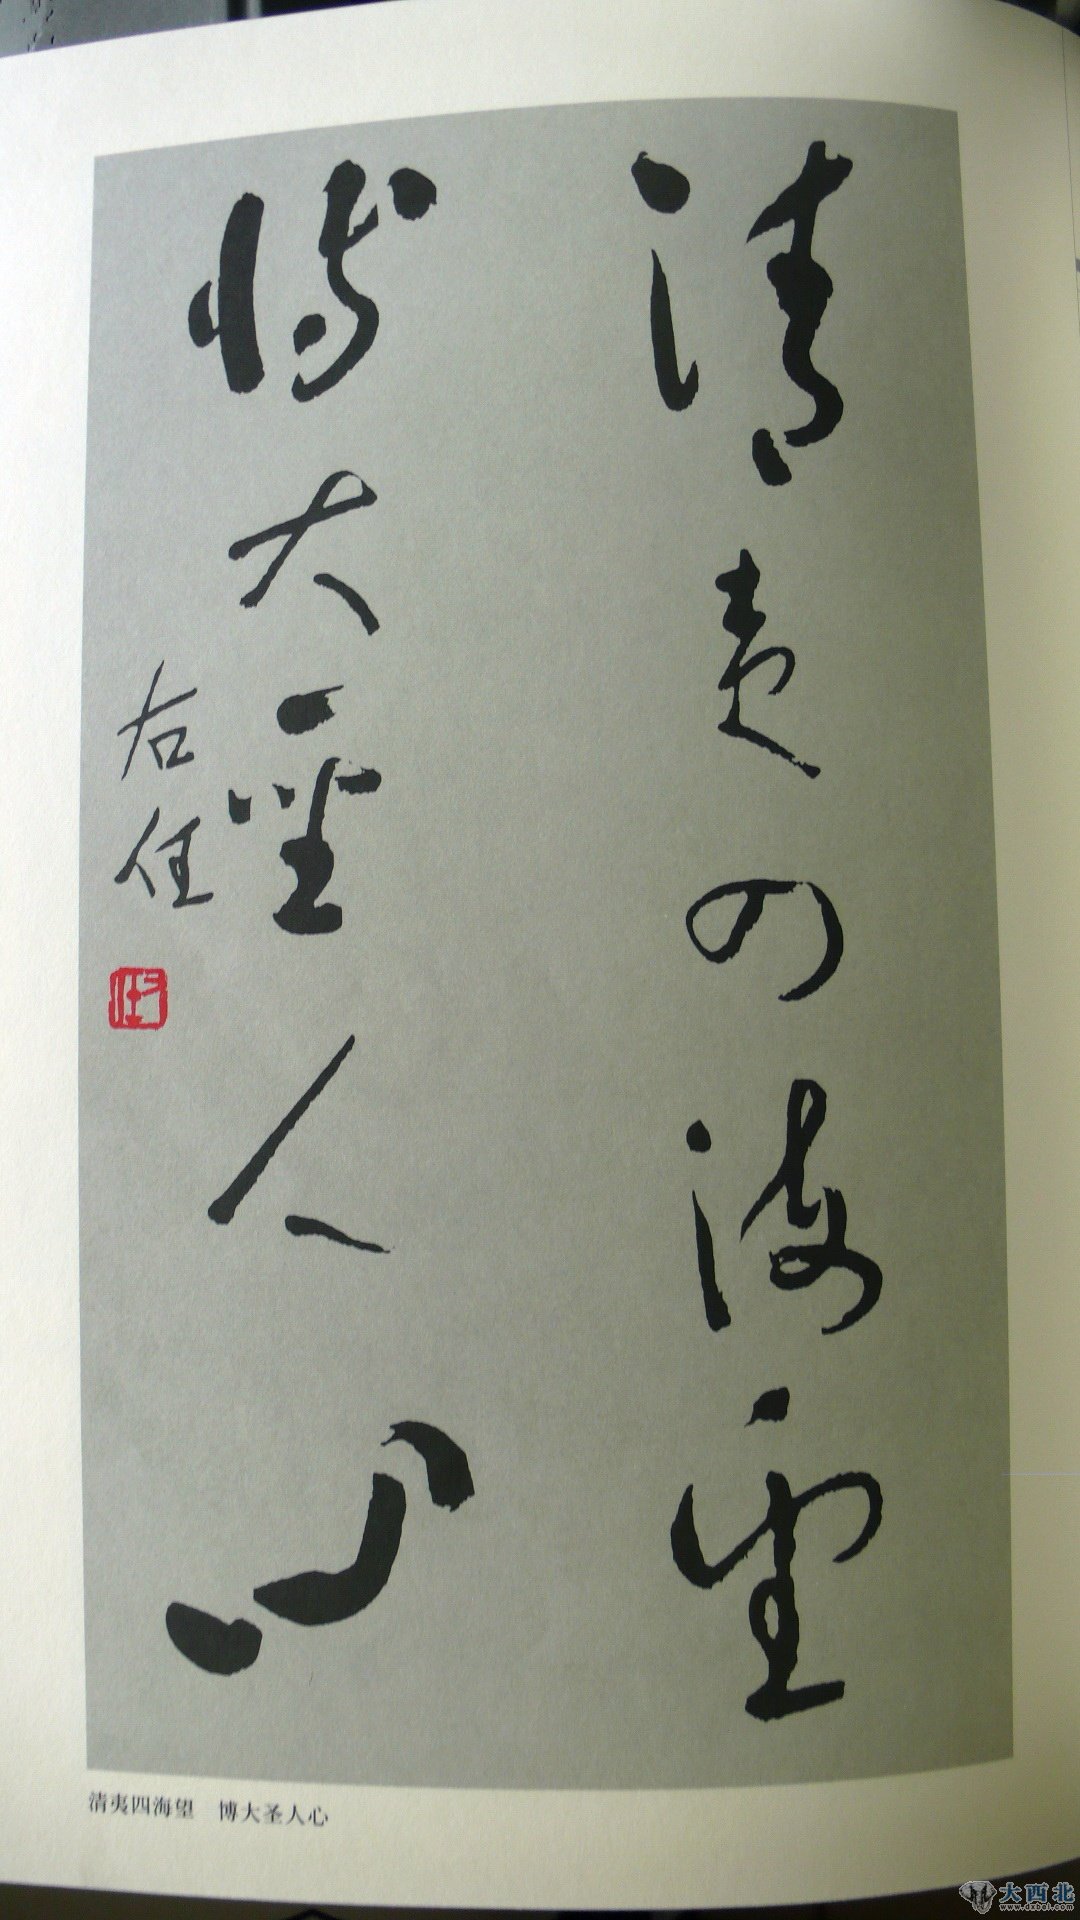 清夷四海望
博大聖人心
右任
右任
清夷四海望 博大圣人心
大西北
www.dxbei.com